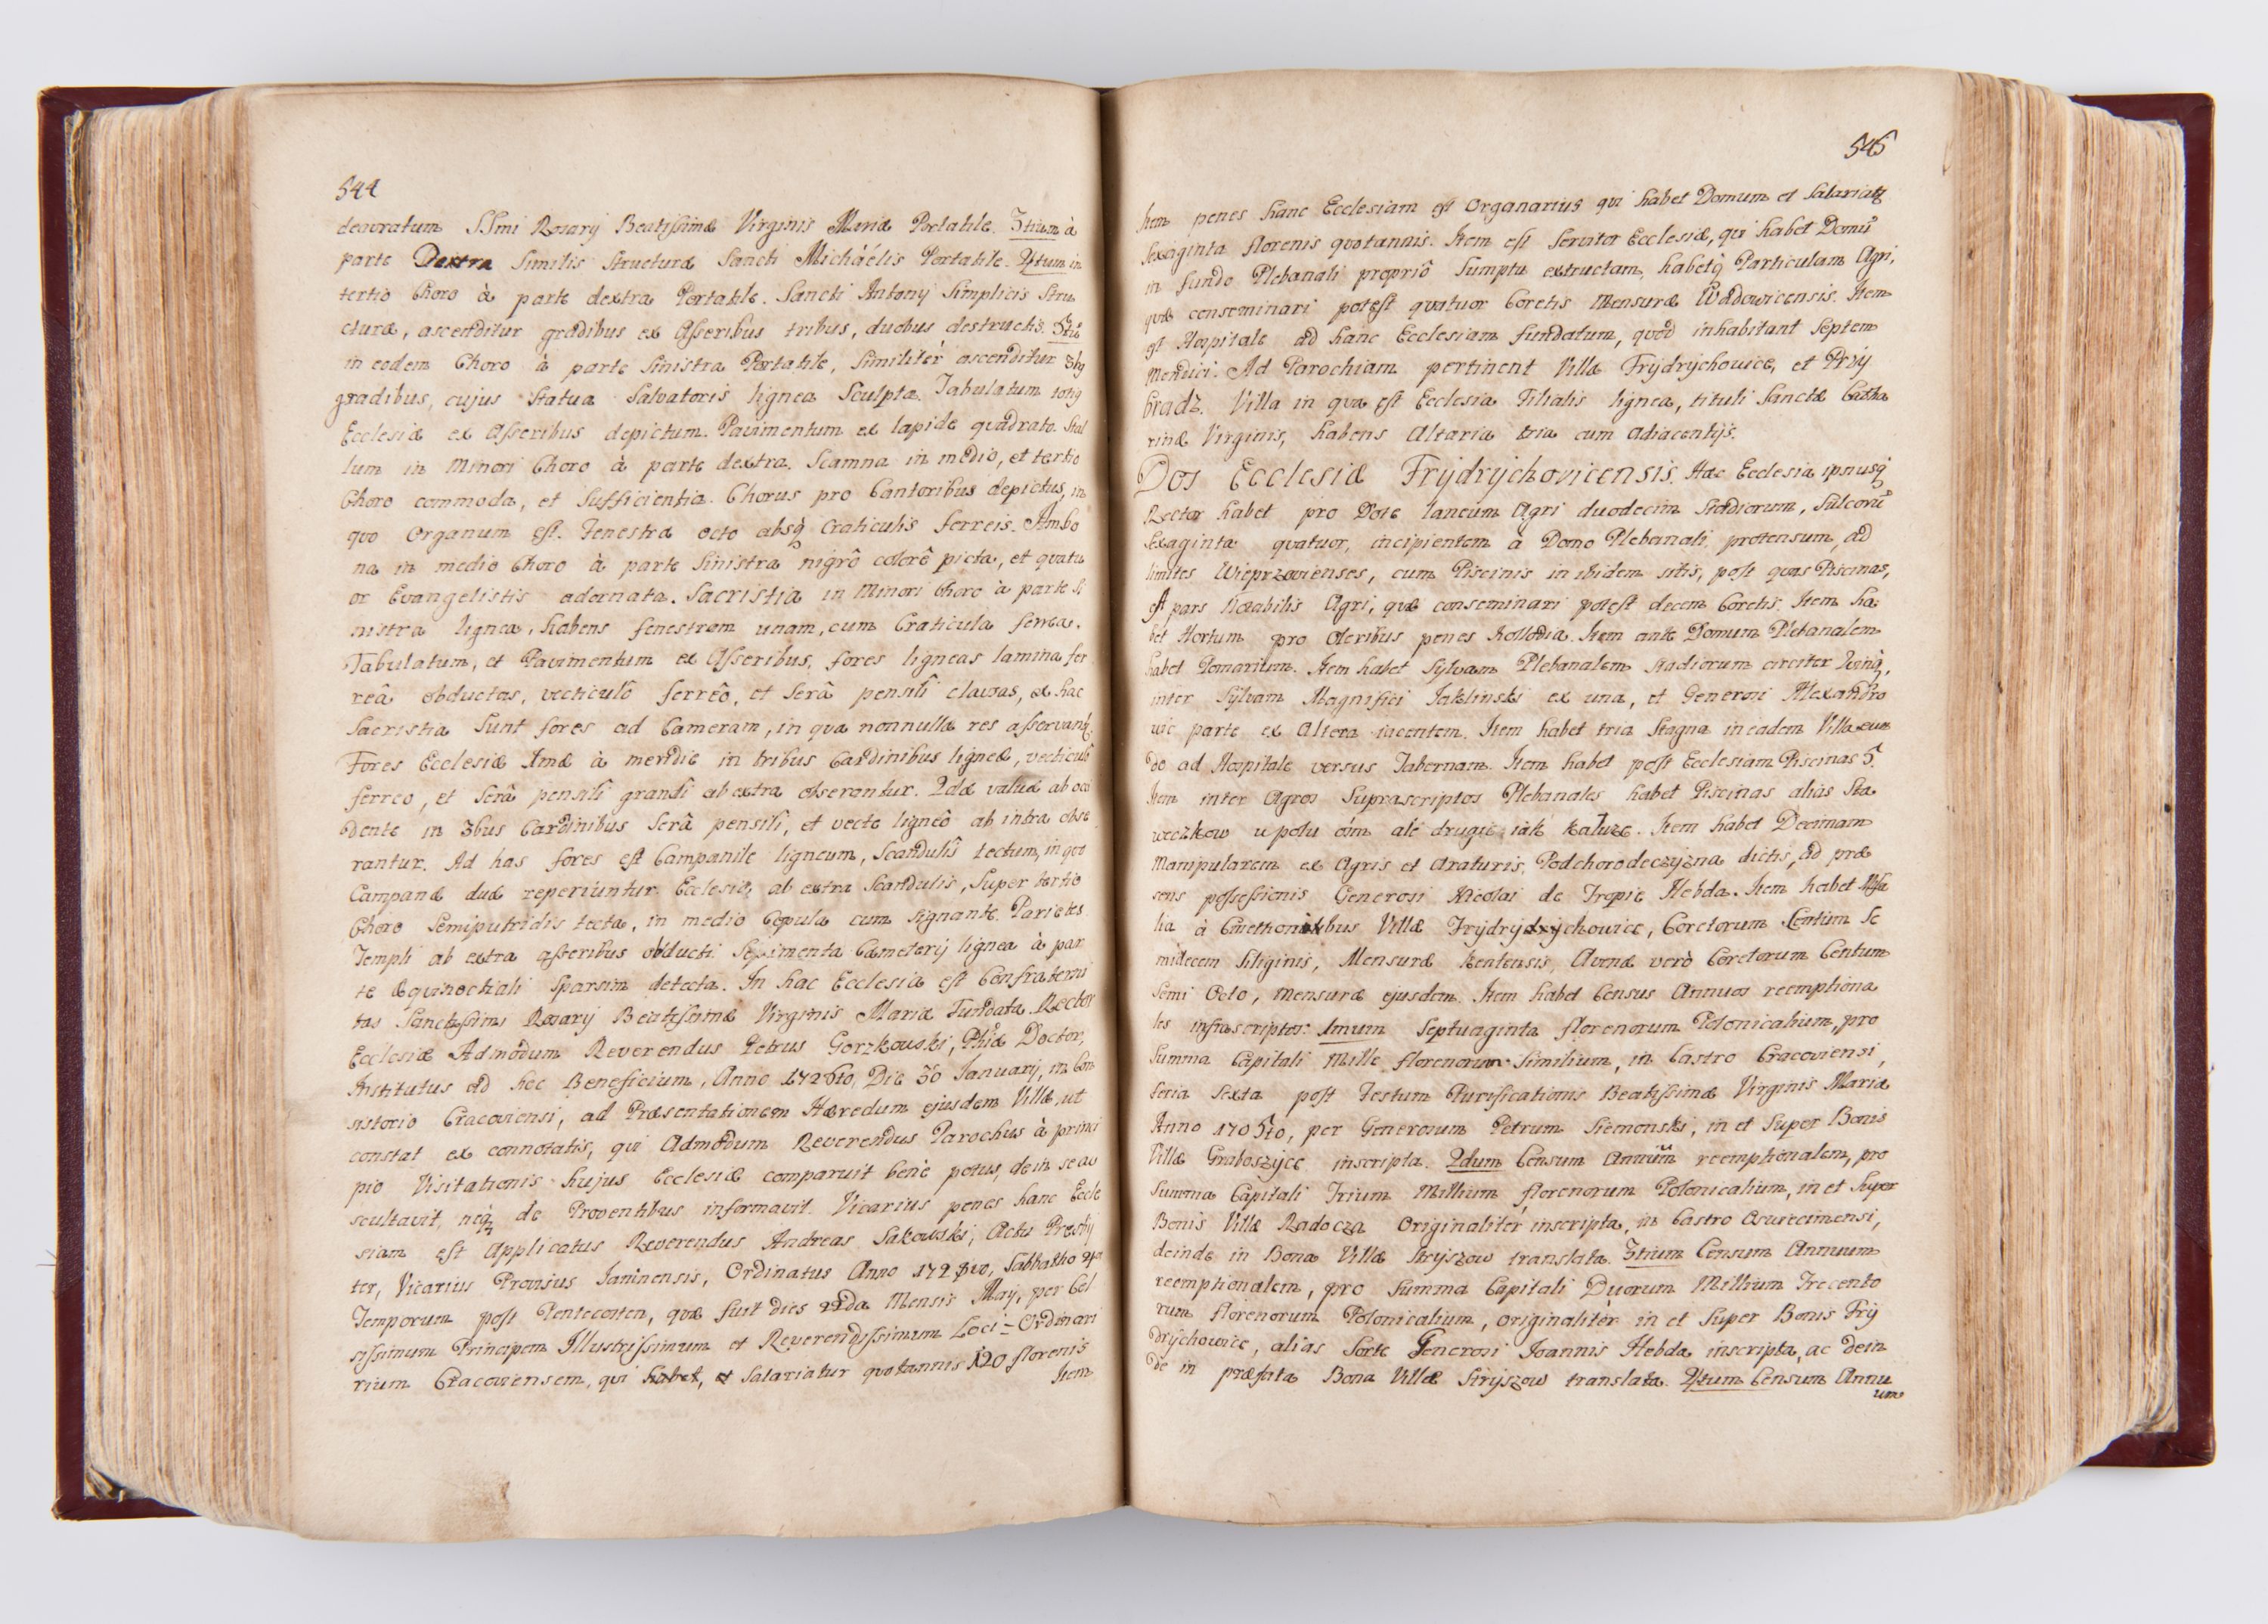 544
deauratum SSmi Rosarij Beatissimæ Virginis Mariæ Portatile. 3tium à
parte Dextra Similis Structuræ Sancti Michäélis Portatile. 4tum in
tertio Choro à parte dextra Portatile. Sancti Antonij Simplicis Stru
cturæ, ascenditur gradibus ex Asseribus tribus, duobus destructis. 5tũ
in eodem Choro à parte Sinistra Portatile, Similitèr ascenditur 3bq
gradibus, cujus Statua Salvatoris lignea Sculpta. Tabulatum totiq
Ecclesiæ ex Asseribus depictum. Pavimentum ex lapide quadrato. Stal
lum in Minori Choro à parte dextra. Scamna in medio, et tertio
Choro commoda, et Sufficientia. Chorus pro Cantoribus depictus, in
quo Organum est. Fenestræ octo absq̀ Craticulis ferreis. Ambo
na in medio Choro à parte Sinistra nigrô colorê picta, et quatu
or Evangelistis adornata. Sacristia in Minori Choro à parte Si
nistra lignea, habens fenestram unam, cum Craticula ferrea.
Tabulatum, et Pavimentum ex Asseribus, fores ligneas lamina fer
reâ obductas, vecticulô ferreô, et Serâ pensilî clausas, ex hac
Sacristia Sunt fores ad Cameram, in qua nonnullæ res asservantr.
Fores Ecclesiæ 1mæ à meridie in tribus Cardinibus ligneæ, vecticulô
ferreo, et Serâ pensilî grandî ab extra obserantur. 2dæ valvæ ab occi
dente in 3bus Cardinibus Serâ pensilî, et vecte ligneô ab intra obse
rantur. Ad has fores est Campanile ligneum, Scandulîs tectum, in quo
Campanæ duæ reperiuntur. Ecclesia ab extra Scandulis, Super tertio
Choro Semiputridis tecta, in medio Copula cum Signante. Parietes
Templi ab extra asseribus obducti. Sepimenta Cæmeterij lignea à par
te Æquinoctiali Sparsim detecta. In hac Ecclesia est Confraterni
tas Sanctissimi Rosarij Beatissimæ Virginis Mariæ Fundata. Rector
Ecclesiæ Admodum Reverendus Petrus Gorzkowski, Phiæ Doctor,
Institutus ad hoc Beneficium, Anno 1726to, Die 30 Januarij, in Con
sistorio Cracoviensi, ad Præsentationem Hæredum ejusdem Villæ, ut
constat ex connotatis, qui Admodum Reverendus Parochus à princi
pio Visitationis hujus Ecclesiæ comparuit benè potus, dein se au
scultavit, neq̀ de Proventibus informavit. Vicarius penes hanc Eccle
siam est Applicatus Reverendus Andreas Sakowski, Actu Presbij
ter, Vicarius Provisus Janinensis, Ordinatus Anno Sabbatho 4or
Temporum post Pentecosten, quæ fuit dies Mensis Maij, per Cel
sissimum Principem Illustrissimum et Reverendissimum Loci = Ordinari
rium Cracoviensem, qui habet, et Salariatur quotannis 120 florenis
Item
545
Item penes hanc Ecclesiam est Organarius qui habet Domum et Salariatr
Sexaginta florenis quotannis. Item est Servitor Ecclesiæ, qui habet Domũ
in fundo Plebanali propriô Sumptu extructam, habetq̀ Particulam Agri,
quæ conseminari potest quatuor Coretis Mensuræ Wadowicensis. Item
est Hospitale ad hanc Ecclesiam fundatum, quod inhabitant Septem
Mendici. Ad Parochiam pertinent Villa Frÿdrÿchowice, et Przÿ
bradz. Villa in qua est Ecclesia Filialis lignea, tituli Sanctæ Catha
rinæ Virginis, habens Altaria tria cum Adiacentijs.
Dos Ecclesiæ Frÿdrÿchovicensis. Hæc Ecclesia ipsiusq̀
Rector habet pro Dote laneum Agri duodecim Stadiorum, Sulcorũ
Sexaginta quatuor, incipientem à Domo Plebanali, protensum, ad
limites Wieprzovienses, cum Piscinis in ibidem sitis, post quas Piscinas,
est pars Notabilis Agri, quæ conseminari potest decem Coretis. Item ha
bet Hortum pro oleribus penes Item ante Domum Plebanalem
habet Pomarium. Item habet Sÿlvam Plebanalem Stadiorum circiter Quinq̀,
inter Sÿlvam Magnifici Jaklinski ex una, et Generosi Alexandro
wic parte ex Altera iacentem. Item habet tria Stagna in eadem Villa eun
do ad Hospitale versus Tabernam. Item habet post Ecclesiam Piscinas 5.
Item inter Agros Suprascriptos Plebanales habet Piscinas alias Sta
weczkow u polu ósm ale drugie iak kałuże. Item habet Decimam
Manipularem ex Agris et Araturis, Podchorodeczÿzna dictis, ad præ
sens possessionis Generosi Nicolai de Tropie Hebda. Item habet Missa
lia à Cmethonibus Villæ Frÿdrÿchowice, Coretorum Centum Se
midecem Siliginis, Mensuræ Kentensis, Avenæ verò Coretorum Centum
Semi Octo, Mensuræ ejusdem. Item habet Census Annuos reemptiona
les infrascriptos: 1mum Septuaginta florenorum Polonicalium, pro
Summa Capitali Mille florenorum Similium, in Castro Cracoviensi,
feria Sexta post Festum Purificationis Beatissimæ Virginis Mariæ
Anno 1705to, per Generosum Petrum Siemonski, in et Super Bonis
Villæ Graboszÿce inscripta. 2dum Censum Annuũm reemptionalem, pro
Summa Capitali Trium Millium florenorum Polonicalium, in et Super
Bonis Villæ Radocza Originalitèr inscripta, in Castro Osviecimensi,
deinde in Bona Villæ Strÿszow translata. 3tium Censum Annuum
reemptionalem, pro Summa Capitali Duorum Millium Trecento
rum florenorum Polonicalium, originalitèr in et Super Bonis Frÿ
drÿchowice, alias Sorte Generosi Joannis Hebda inscripta, ac dein
de in præfata Bona Villæ Strÿszow translata. 4tum Censum Annu
um